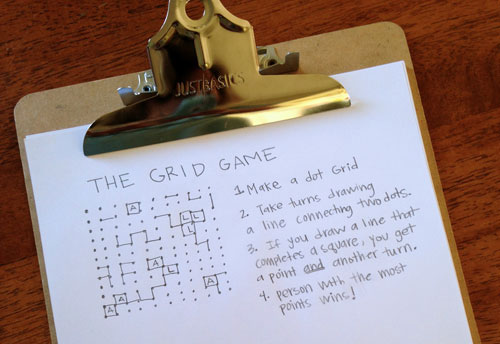 JUSTBASICS
THE GRID GAME
A
L L
L
A L
A
A
A
1. Make a dot Grid
2. Take turns drawing
a line connecting two dots.
3. If you draw a line that
completes a square, you get
a point and another turn.
4. person with the most
points wins!